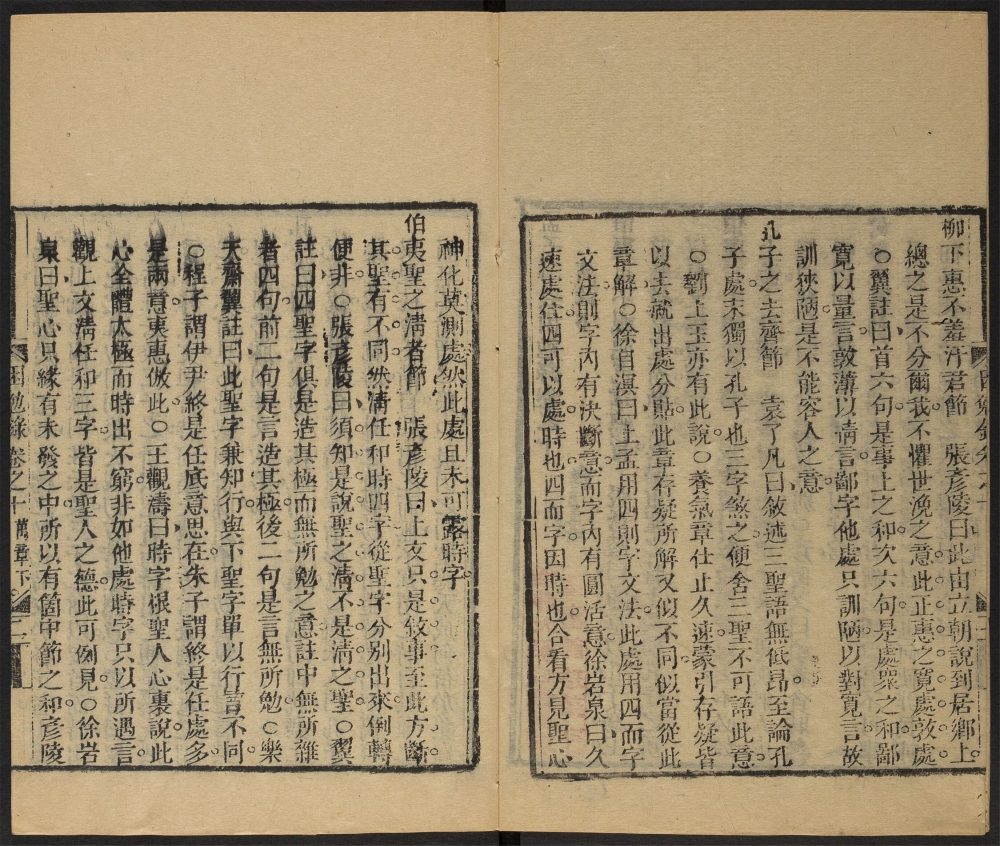 柳下惠不羞汙君節　張彥陵曰此由立朝說到居鄉上
總之是不分爾我不懼世浼之意此正惠之寬處敦處
○翼註曰首六句是事上之和次六句是處眾之和鄙
寬以量言敦薄以情言鄙字他處只訓陋以對寬言故
訓狹陋是不能容人之意
孔子之去齊節　袁了凡曰敘述三聖語無低昂至論孔
子處末獨以孔子也三字煞之便舍三聖不可語此意
○劉上玉亦有此說○養氣章仕止久速蒙引存疑皆
以去就出處分貼此章存疑所解又似不同似當從此
章解○徐自溟曰上孟用四則字文法此處用四而字
文法則字內有決斷意而字內有圓活意徐岩泉曰久
速處仕四可以處時也四而字因時也合看方見聖心
神化莫測處然此處且未可露時字
伯夷聖之清者節　張彥陵曰上文只是敘事至此方斷
其聖有不同然清任和時四字從聖字分別出來倒轉
便非○張彥陵曰須知是說聖之清不是清之聖○翼
註曰四聖字俱是造其極而無所勉之意註中無所雜
者四句前二句是言造其極後二句是言無所勉○樂
天齋翼註曰此聖字兼知行與下聖字單以行言不同
○程子謂伊尹終是任底意思在朱子謂終是任處多
是兩意夷惠倣此○王觀濤曰時字根聖人心裏說此
心全體太極而時出不窮非如他處時字只以所遇言
觀上文清任和三字皆是聖人之德此可例見○徐岩
泉曰聖心只緣有未發之中所以有箇中節之和彥陵
困勉錄　卷之十　萬章下　二